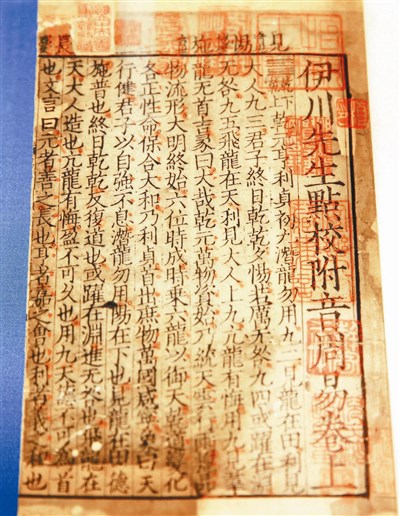 伊川先生點校附音周易卷上
乾下乾元亨利貞初九潛龍勿用九二見龍在田利見
大人九三君子終日乾乾夕惕若厲无咎九四或躍在淵
无咎九五飛龍在天利見大人上九亢龍有悔用九見羣
龍无首吉彖曰大哉乾元萬物資始乃統天雲行雨施品
物流形大明終始六位時成時乘六龍以御天乾道變化
各正性命保合大和乃利貞首出庶物萬國咸寧象曰天
行健君子以自強不息潛龍勿用陽在下也見龍在田德
施普也終日乾乾反復道也或躍在淵進无咎也飛龍在
天大人造也亢龍有悔盈不可久也用九天德不可爲首
也文言曰元者善之長也亨者嘉之會也利者義之和也
見
惕
施
長